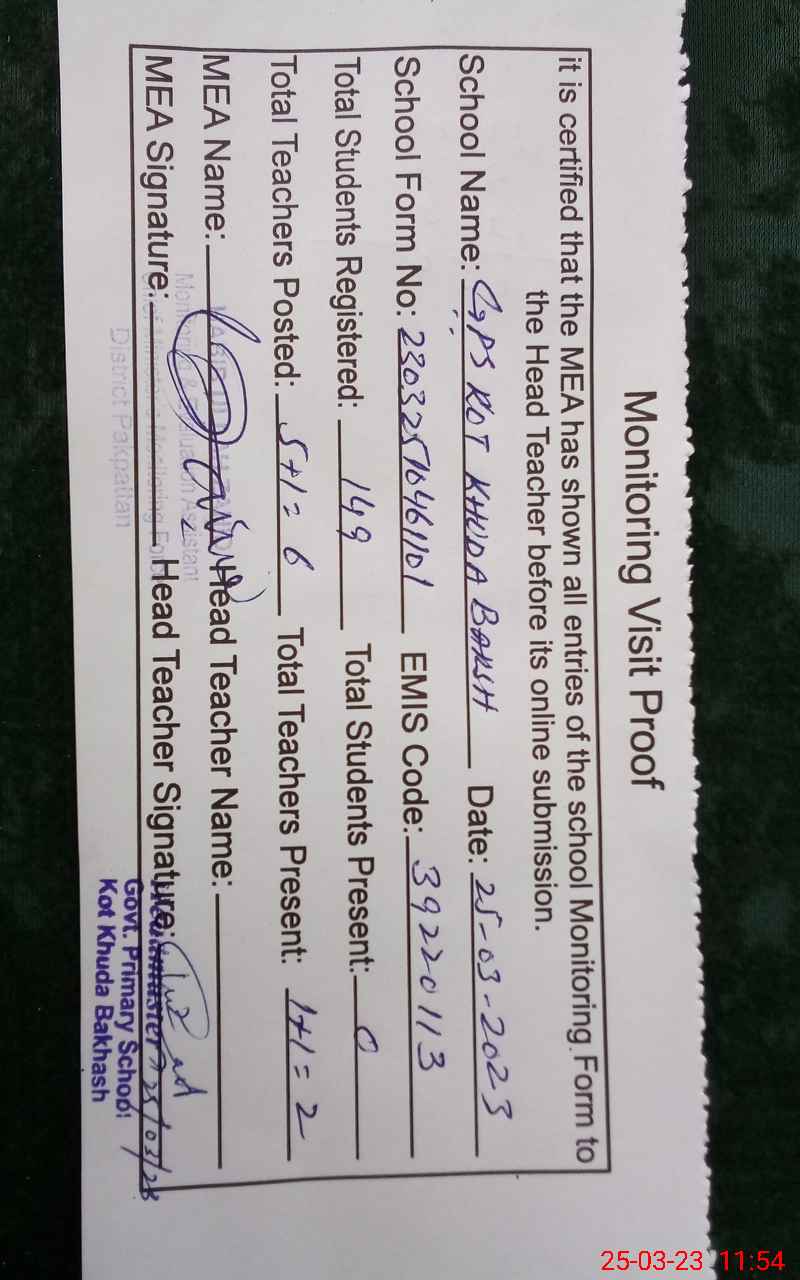 Monitoring Visit Proof
it is certified that the MEA has shown all entries of the school Monitoring Form to
the Head Teacher before its online submission.
School Name: GPS KOT KHUDA BAKSH Date: 25-03-2023
School Form No: 23032516461101 EMIS Code: 39220113
Total Students Registered: 149 Total Students Present: 0
Total Teachers Posted: 5+1=6 Total Teachers Present: 1+1=2
MEA Name: Head Teacher Name:
Monitoring & Evaluation Assistant
MEA Signature: Head Teacher Signature:
Chief Minister's Monitoring Force
District Pakpattan
Headmaster 25/03/23
Govt. Primary School
Kot Khuda Bakhash
25-03-23 11:54